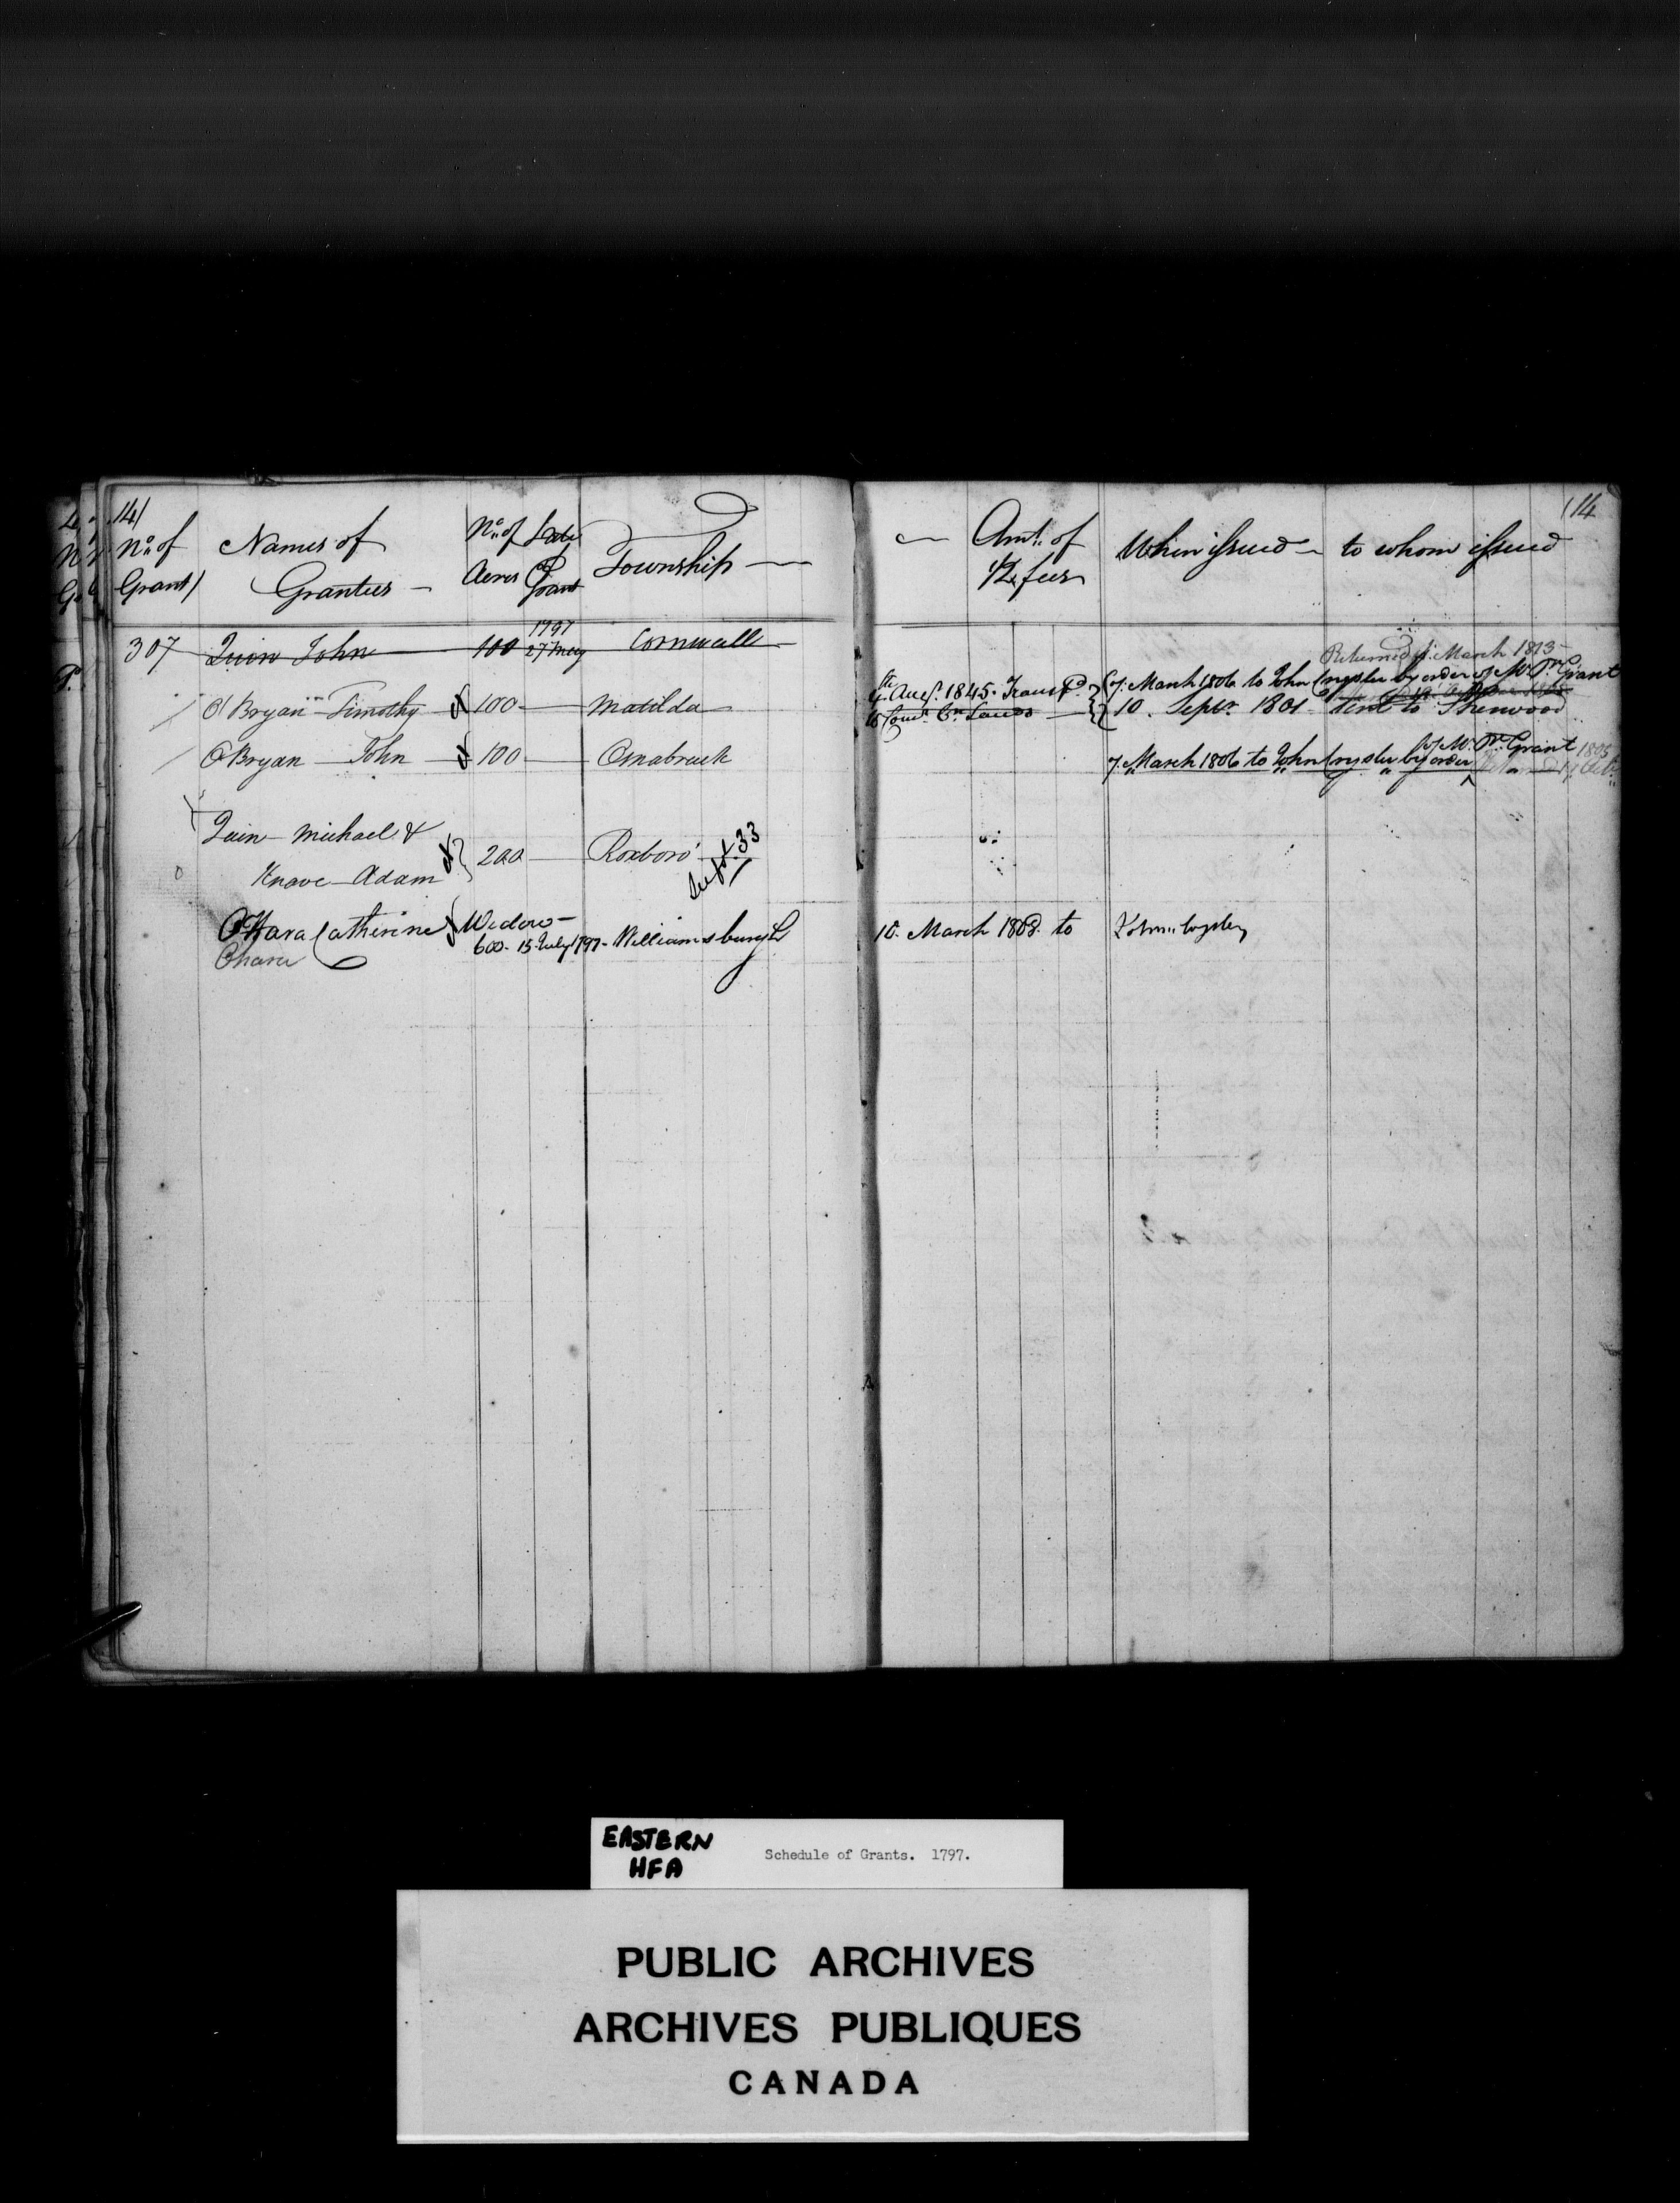 14/
14
No. of Names of No. of Date Township
Grant/ Grantees Acres of Grant
Amt. of ½ fees
When issued to whom issued
1797
307 Quin John 100 27 May Cornwall
Returned March 1813
O Bryan Timothy 100 Matilda
4th Augt. 1845. Transfd. 7. March 1806 to John Crysler by order of Mr. Grant
to Comr. Cn. Lands 10. Septr. 1801 sent to Sherwood
O Bryan John 100 Osnabruck
7. March 1806 to John Crysler by order of Mr. Grant 1805
Quin Michael &
Knave Adam 200 Roxboro' 33
O'Hara Catherine Widow
Ohara 600. 15 July 1797. Williamsburgh
10. March 1808. to John Crysler
EASTERN
HFA
Schedule of Grants. 1797.
PUBLIC ARCHIVES
ARCHIVES PUBLIQUES
CANADA